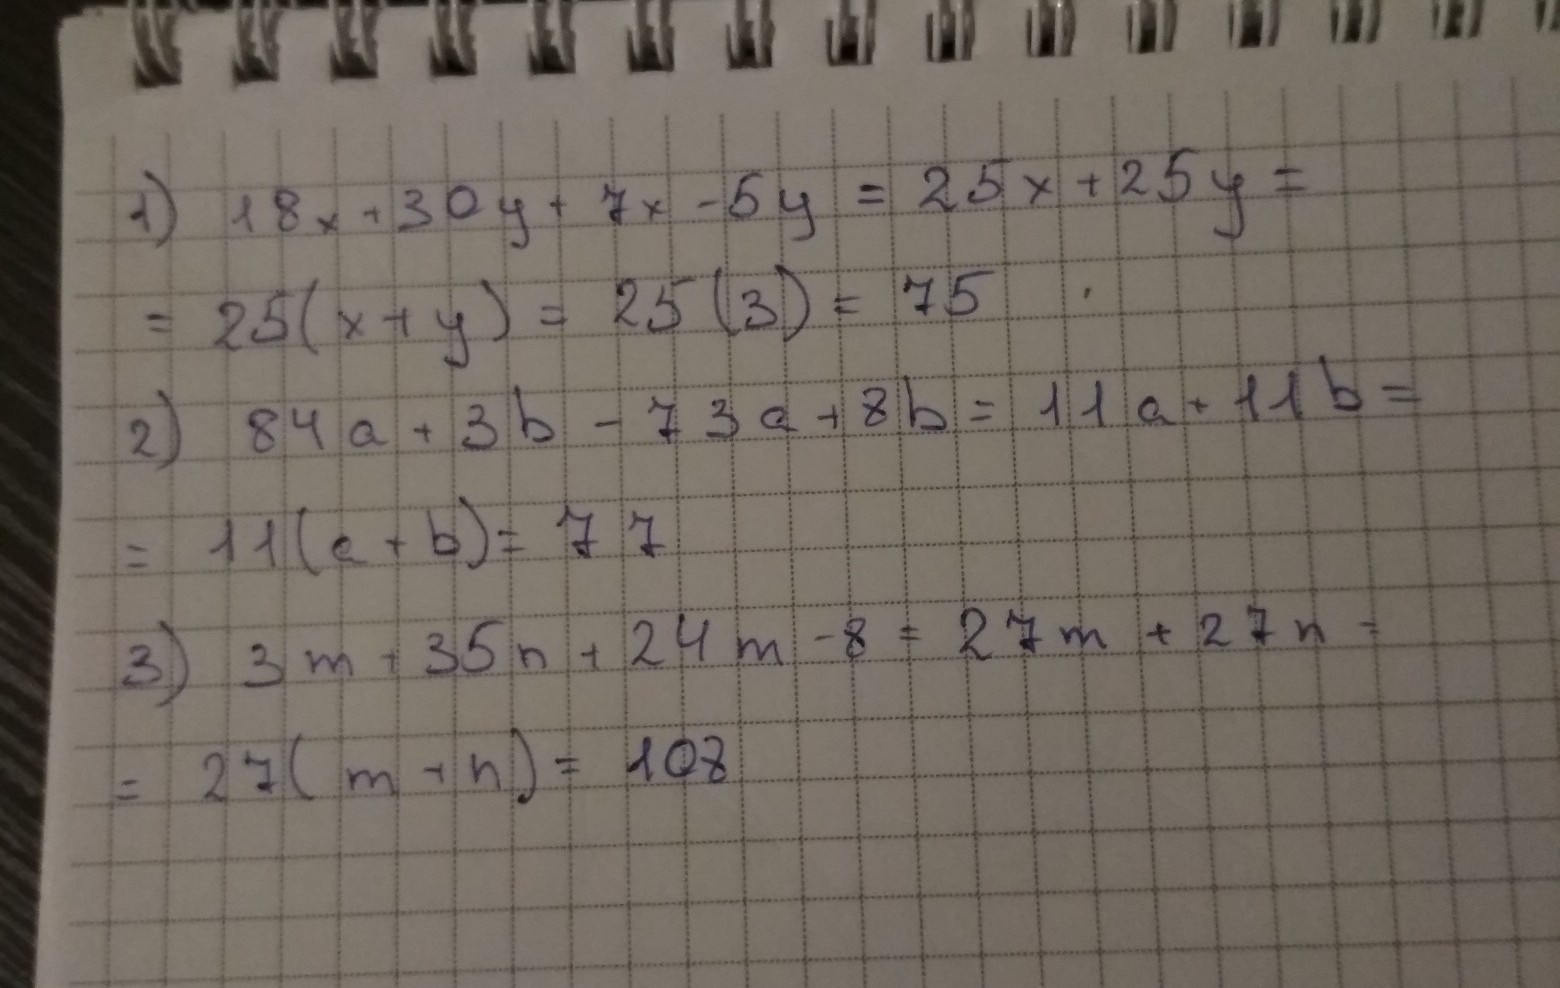 1) 18x+30y+7x-5y=25x+25y=
=25(x+y)=25(3)=75
2) 84a+3b-73a+8b=11a+11b=
=11(a+b)=77
3) 3m+35n+24m-8=27m+27n=
=27(m+n)=108